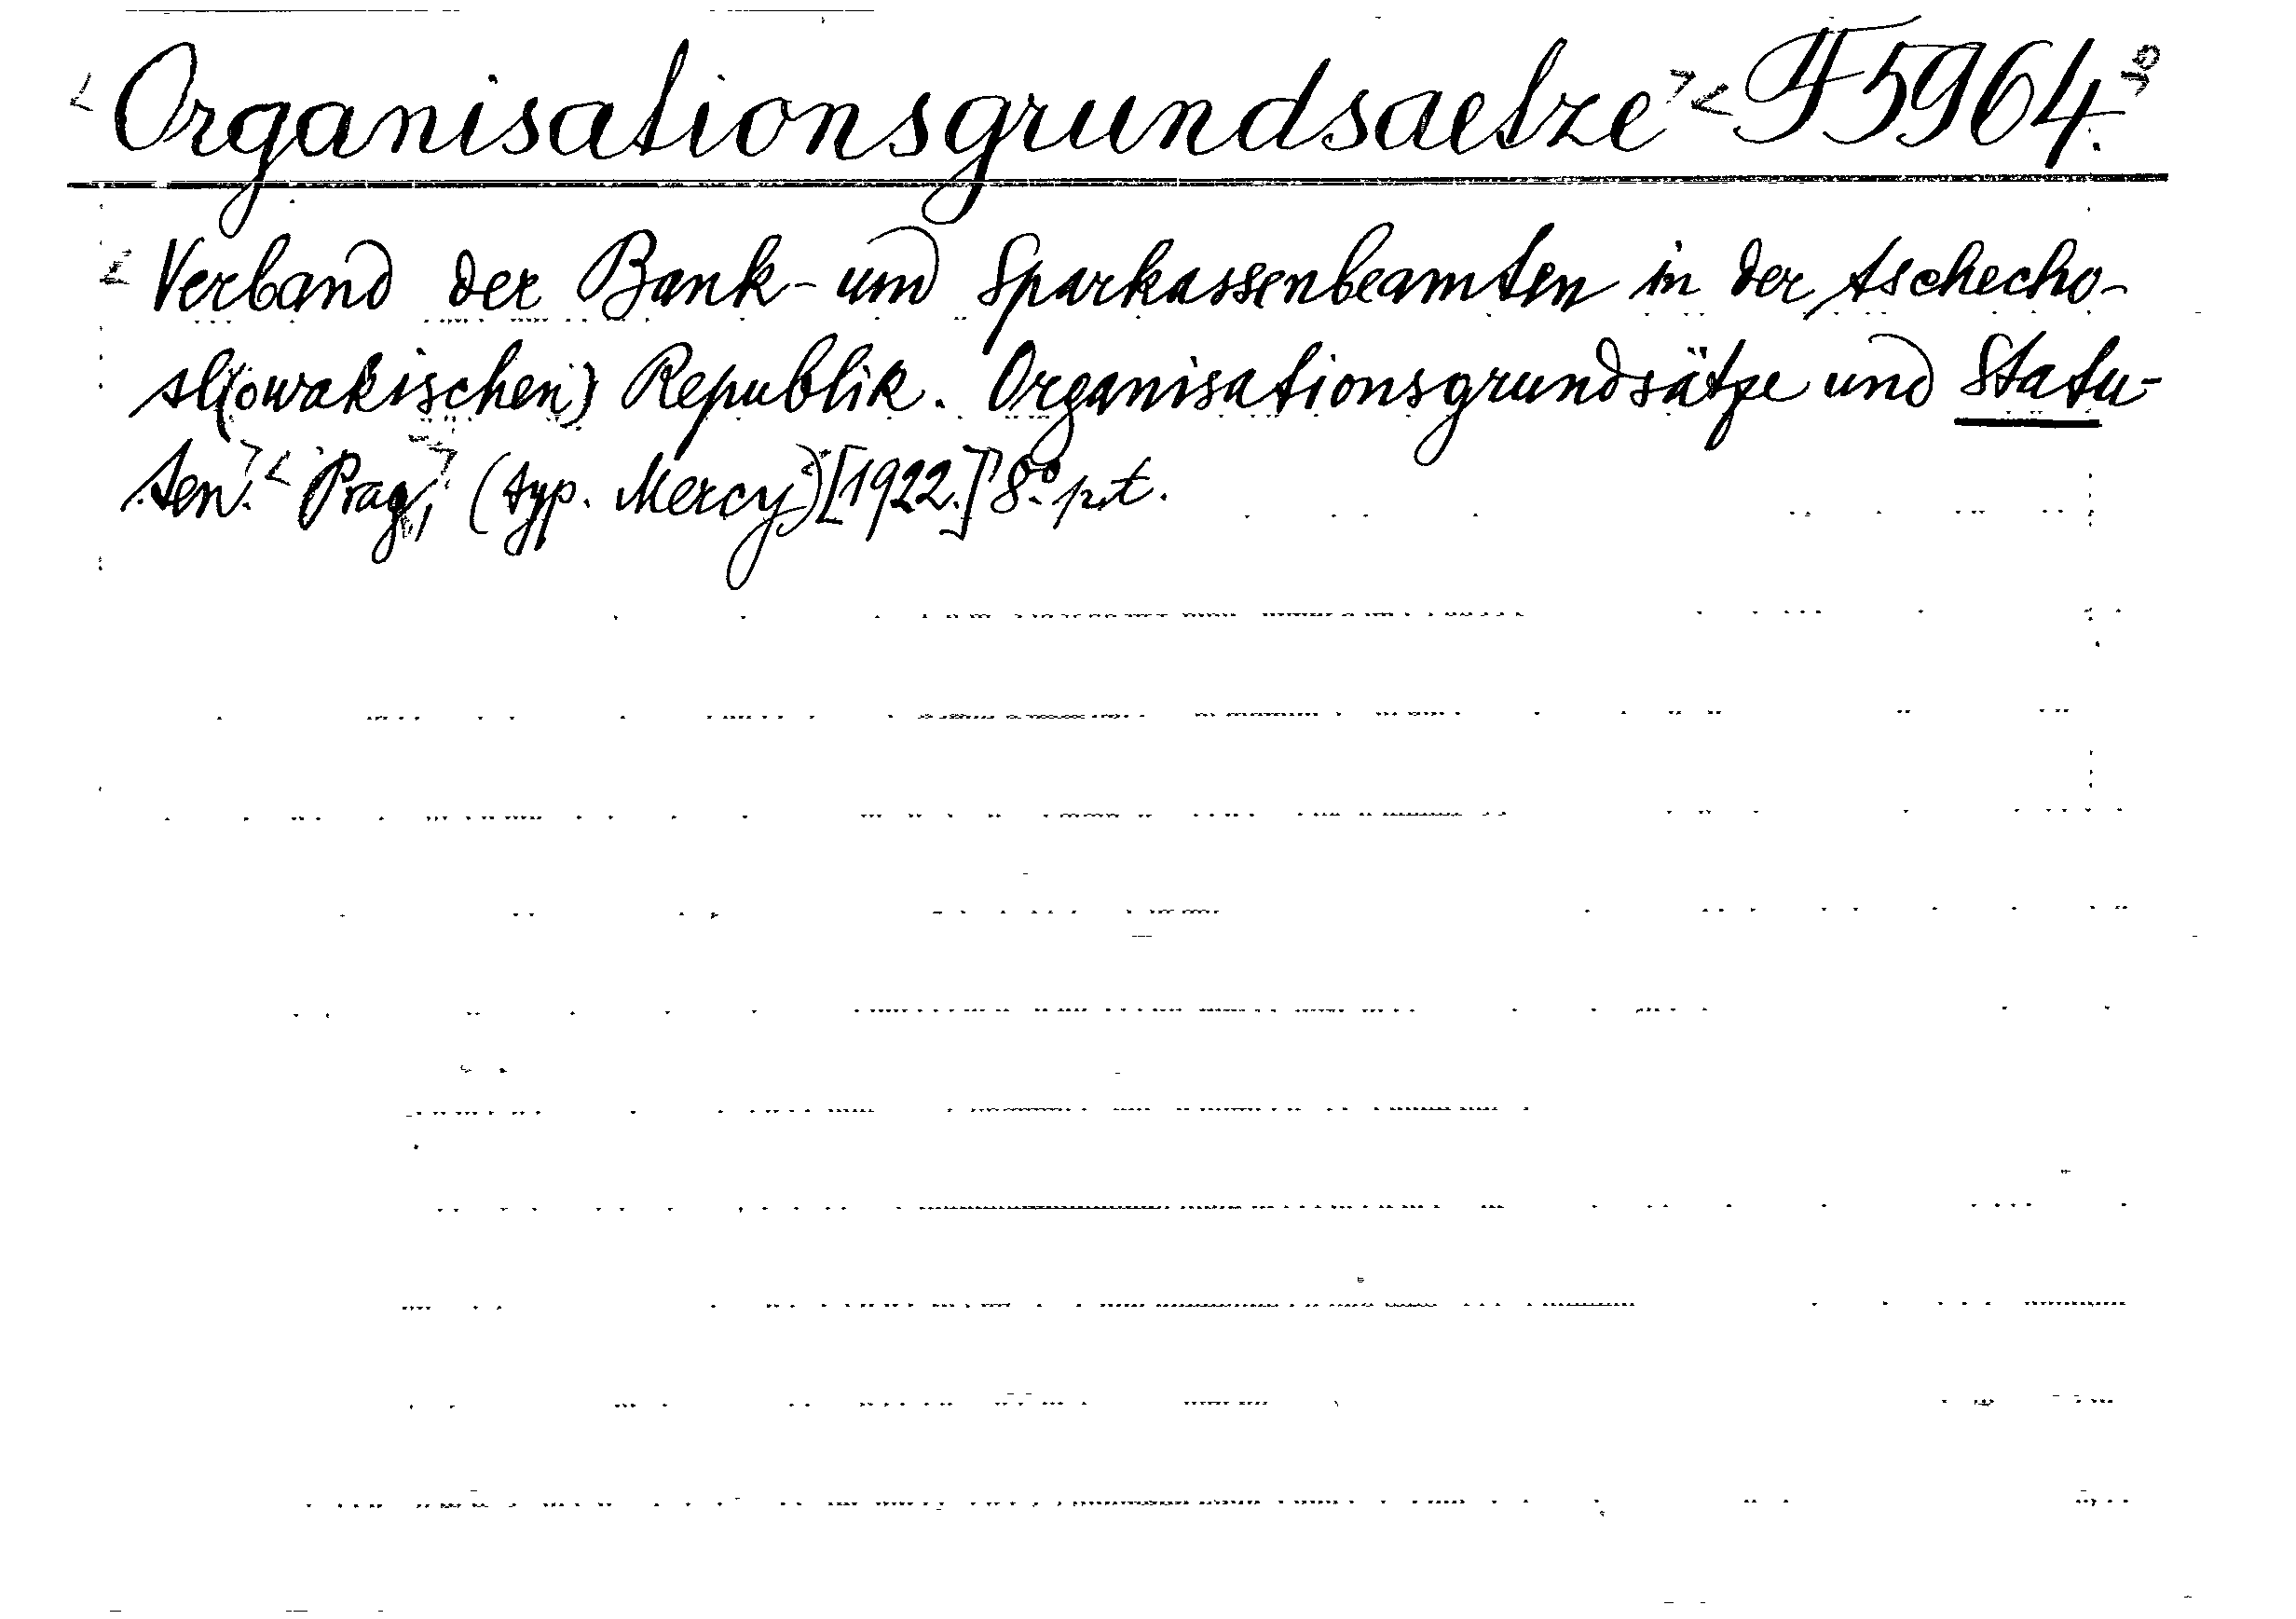 Organisationsgrundsaetze F 5964.
Verband der Bank- und Sparkassenbeamten in der tschecho-
sl(owakischen) Republik. Organisationsgrundsätze und Statu-
ten. Prag, (typ. Mercy) [1922.] 8° p.t.